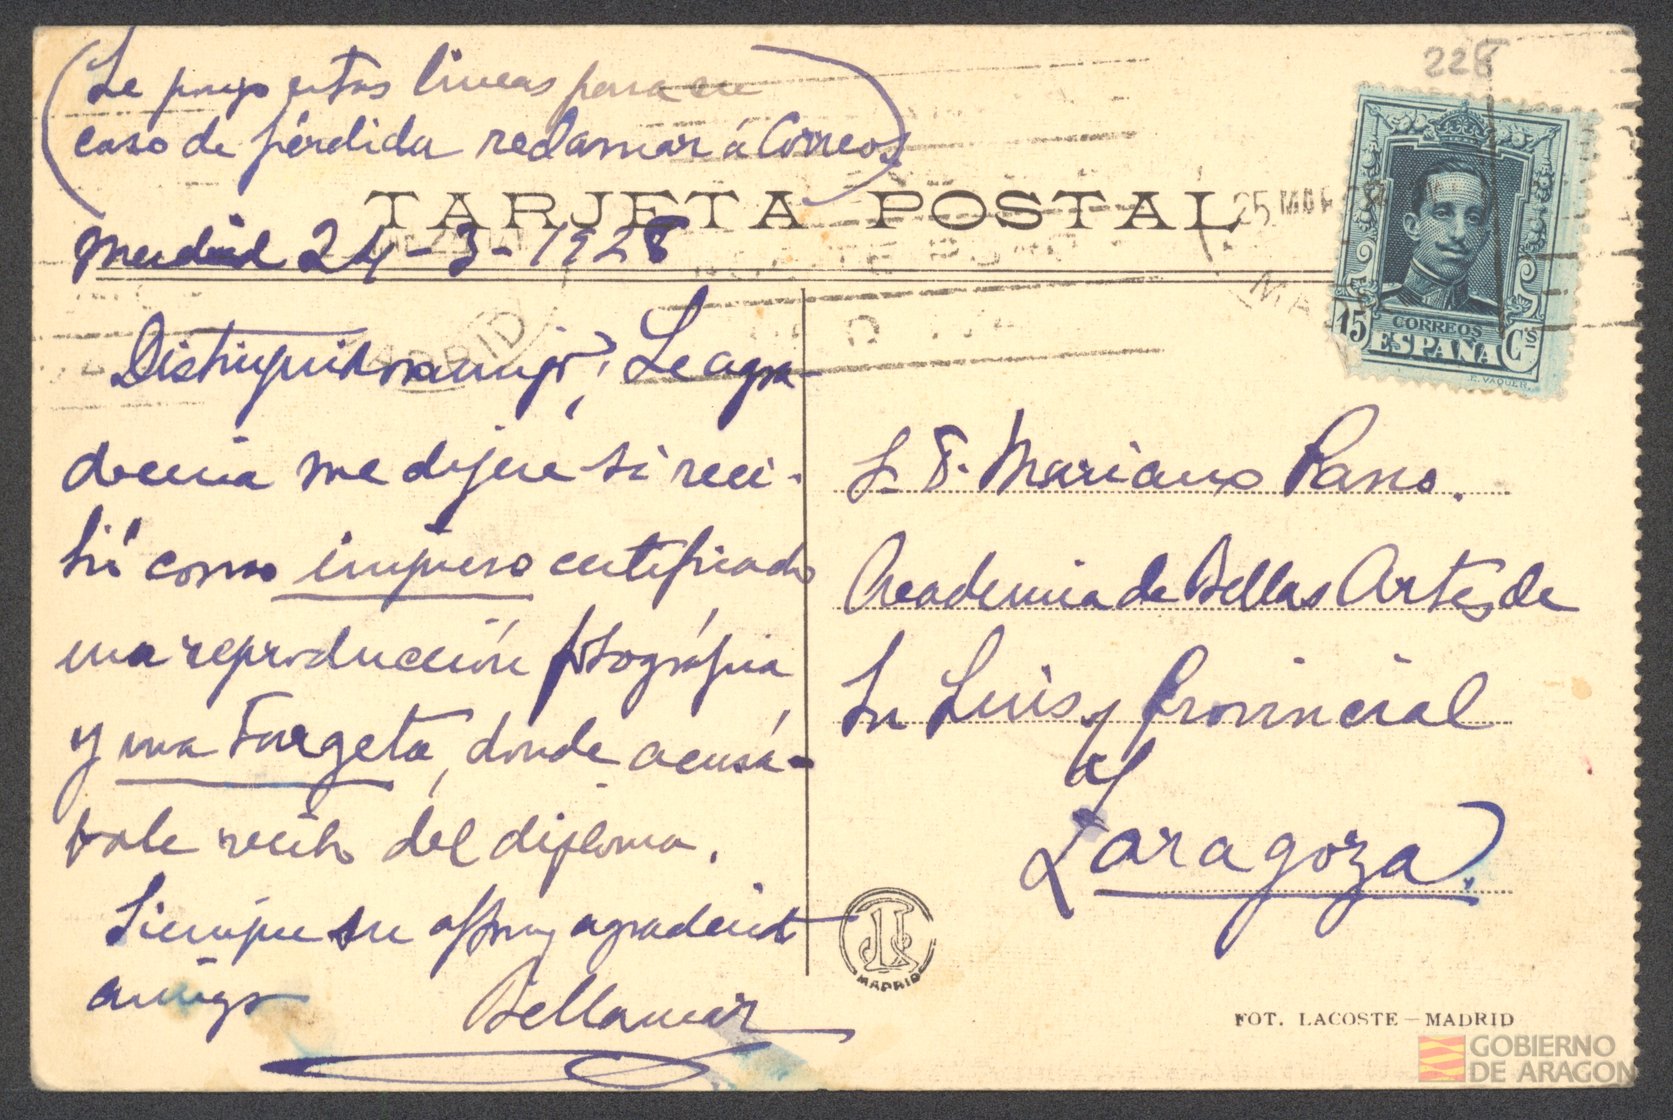 (Le pongo estas lineas para en
caso de pérdida reclamar á Correos)
TARJETA POSTAL
Madrid 24-3-1928
Distinguido amigo: Le agra-
deceria me dijese si reci-
bió como impreso certificado
una reproducción fotográfica
y una Targeta, donde acusá-
bale recibo del diploma.
Siempre su affmo y agradecido
amigo Bellamar
228
25 MAR 28
MADRID
15 CORREOS Cs
ESPAÑA
E. VAQUER.
S. D. Mariano Pano.
Academia de Bellas Artes de
Sn Luis y Provincial
de
Zaragoza.
MADRID
FOT. LACOSTE — MADRID
GOBIERNO
DE ARAGON